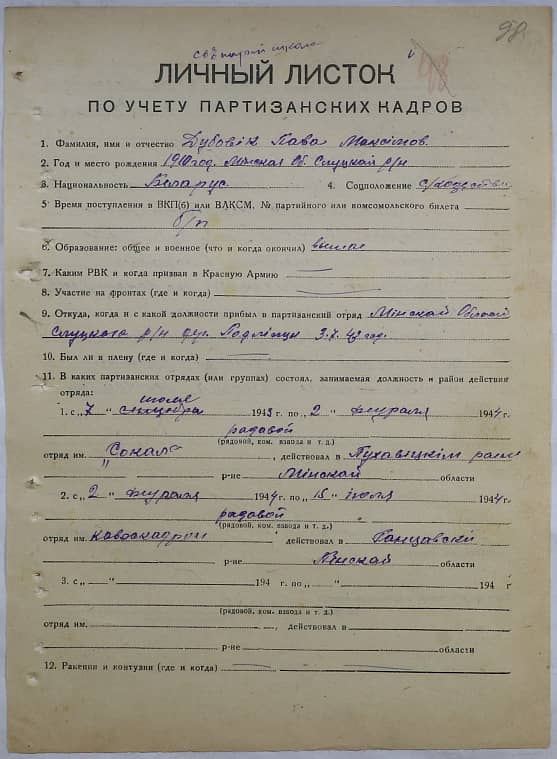 98
ЛИЧНЫЙ ЛИСТОК
ПО УЧЕТУ ПАРТИЗАНСКИХ КАДРОВ
1. Фамилия, имя и отчество Дубовік Пава Максімов.
2. Год и место рождения 1910 год. Мінская Об. Слуцкой р/н
3. Национальность Беларус 4. Соцположение
5 Время поступления в ВКП(б) или ВЛКСМ, № партийного или комсомольского билета
б/п
6. Образование: общее и военное (что и когда окончил)
7. Каким РВК и когда призван в Красную Армию —
8. Участие на фронтах (где и когда) —
9. Откуда, когда и с какой должности прибыл в партизанский отряд Мінской Обласці
Слуцкага р/н 3.7.43 год.
10. Был ли в плену (где и когда) —
11. В каких партизанских отрядах (или группах) состоял, занимаемая должность и район действия
отряда:
июле
1. с „7 “ 1943 г. по „2 “ февраля 1944 г.
радавой
(рядовой, ком. взвода и т. д.)
отряд им. „Сокал“, действовал в Пухавицкім раен
р-не Мінскай области
2. с „2 “ февраля 1944 г. по „15 “ июля 1944 г.
радавой
(рядовой, ком. взвода и т. д.)
отряд им. кавэскадрон действовал в Ганцавскі
р-не Пінской области
3. с „ “ 194 г. по „ “ 194 г
(рядовой, ком. взвода и т. д.)
отряд им. , действовал в
р-не области
12. Ранения и контузии (где и когда)